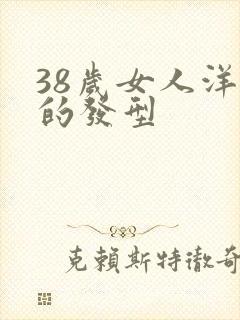 38歲女人洋
的發型
克賴斯特徹奇